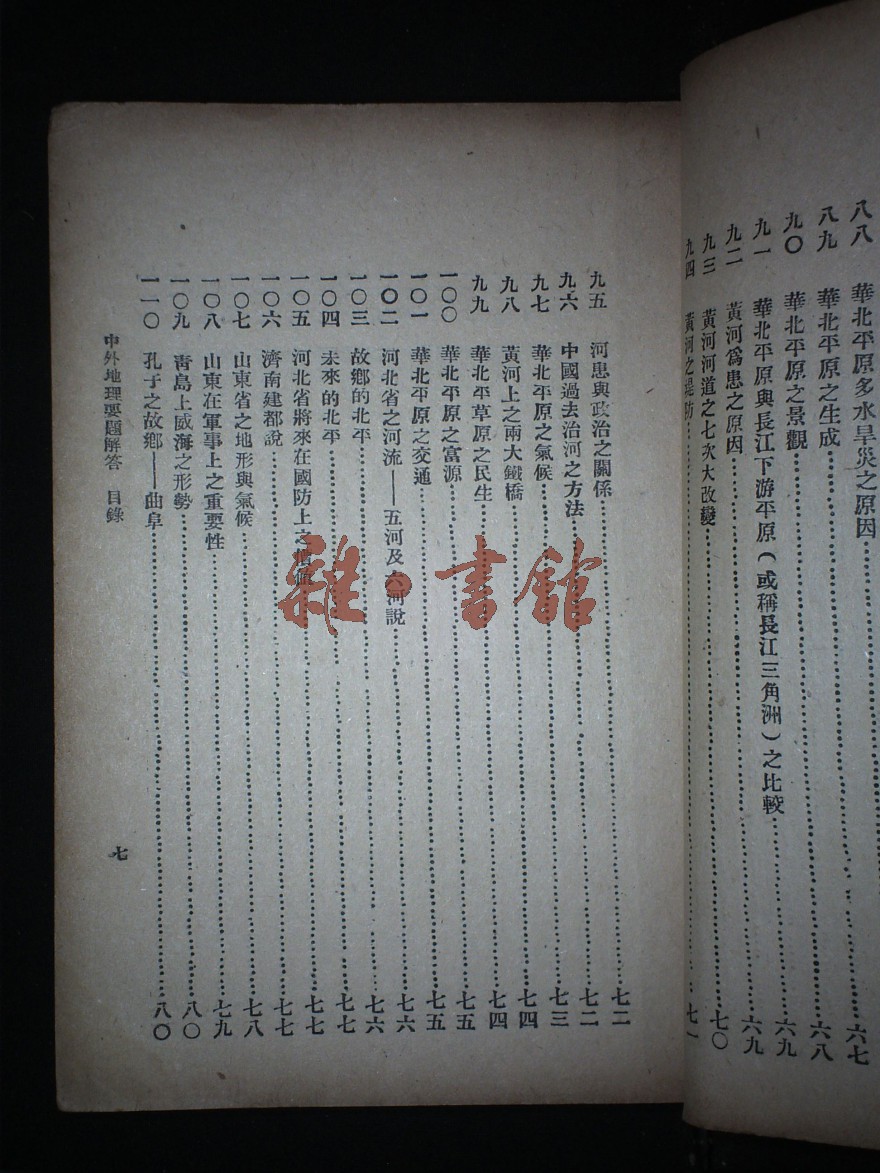 八八　華北平原多水旱災之原因……六七
八九　華北平原之生成……六八
九〇　華北平原之景觀……六九
九一　華北平原與長江下游平原(或稱長江三角洲)之比較……六九
九二　黃河爲患之原因
九三　黃河河道之七次大改變……七〇
九四　黃河之堤防……七一
九五　河患與政治之關係……七二
九六　中國過去治河之方法……七二
九七　華北平原之氣候……七三
九八　黃河上之兩大鐵橋……七四
九九　華北草原之民生……七四
一〇〇　華北平原之富源……七五
一〇一　華北平原之交通……七五
一〇二　河北省之河流——五河及六河說……七六
一〇三　故鄉的北平……七六
一〇四　未來的北平……七七
一〇五　河北省將來在國防上之價值……七七
一〇六　濟南建都說……七七
一〇七　山東省之地形與氣候……七八
一〇八　山東在軍事上之重要性……七九
一〇九　靑島上威海之形勢……八〇
一一〇　孔子之故鄉——曲阜……八〇
中外地理要題解答　目錄　七
雜·書館